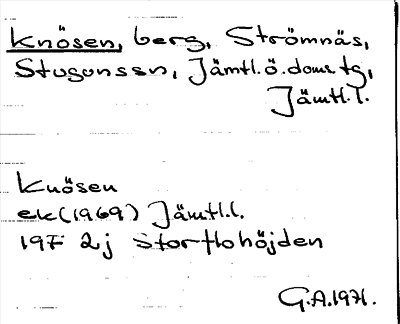 Knösen, berg, Strömnäs,
Stugunssn, Jämtl.ö.doms.tg,
Jämtl.l.
Knösen
ek(1969) Jämtl.l.
19F 2j Storflohöjden
G.A.1971.